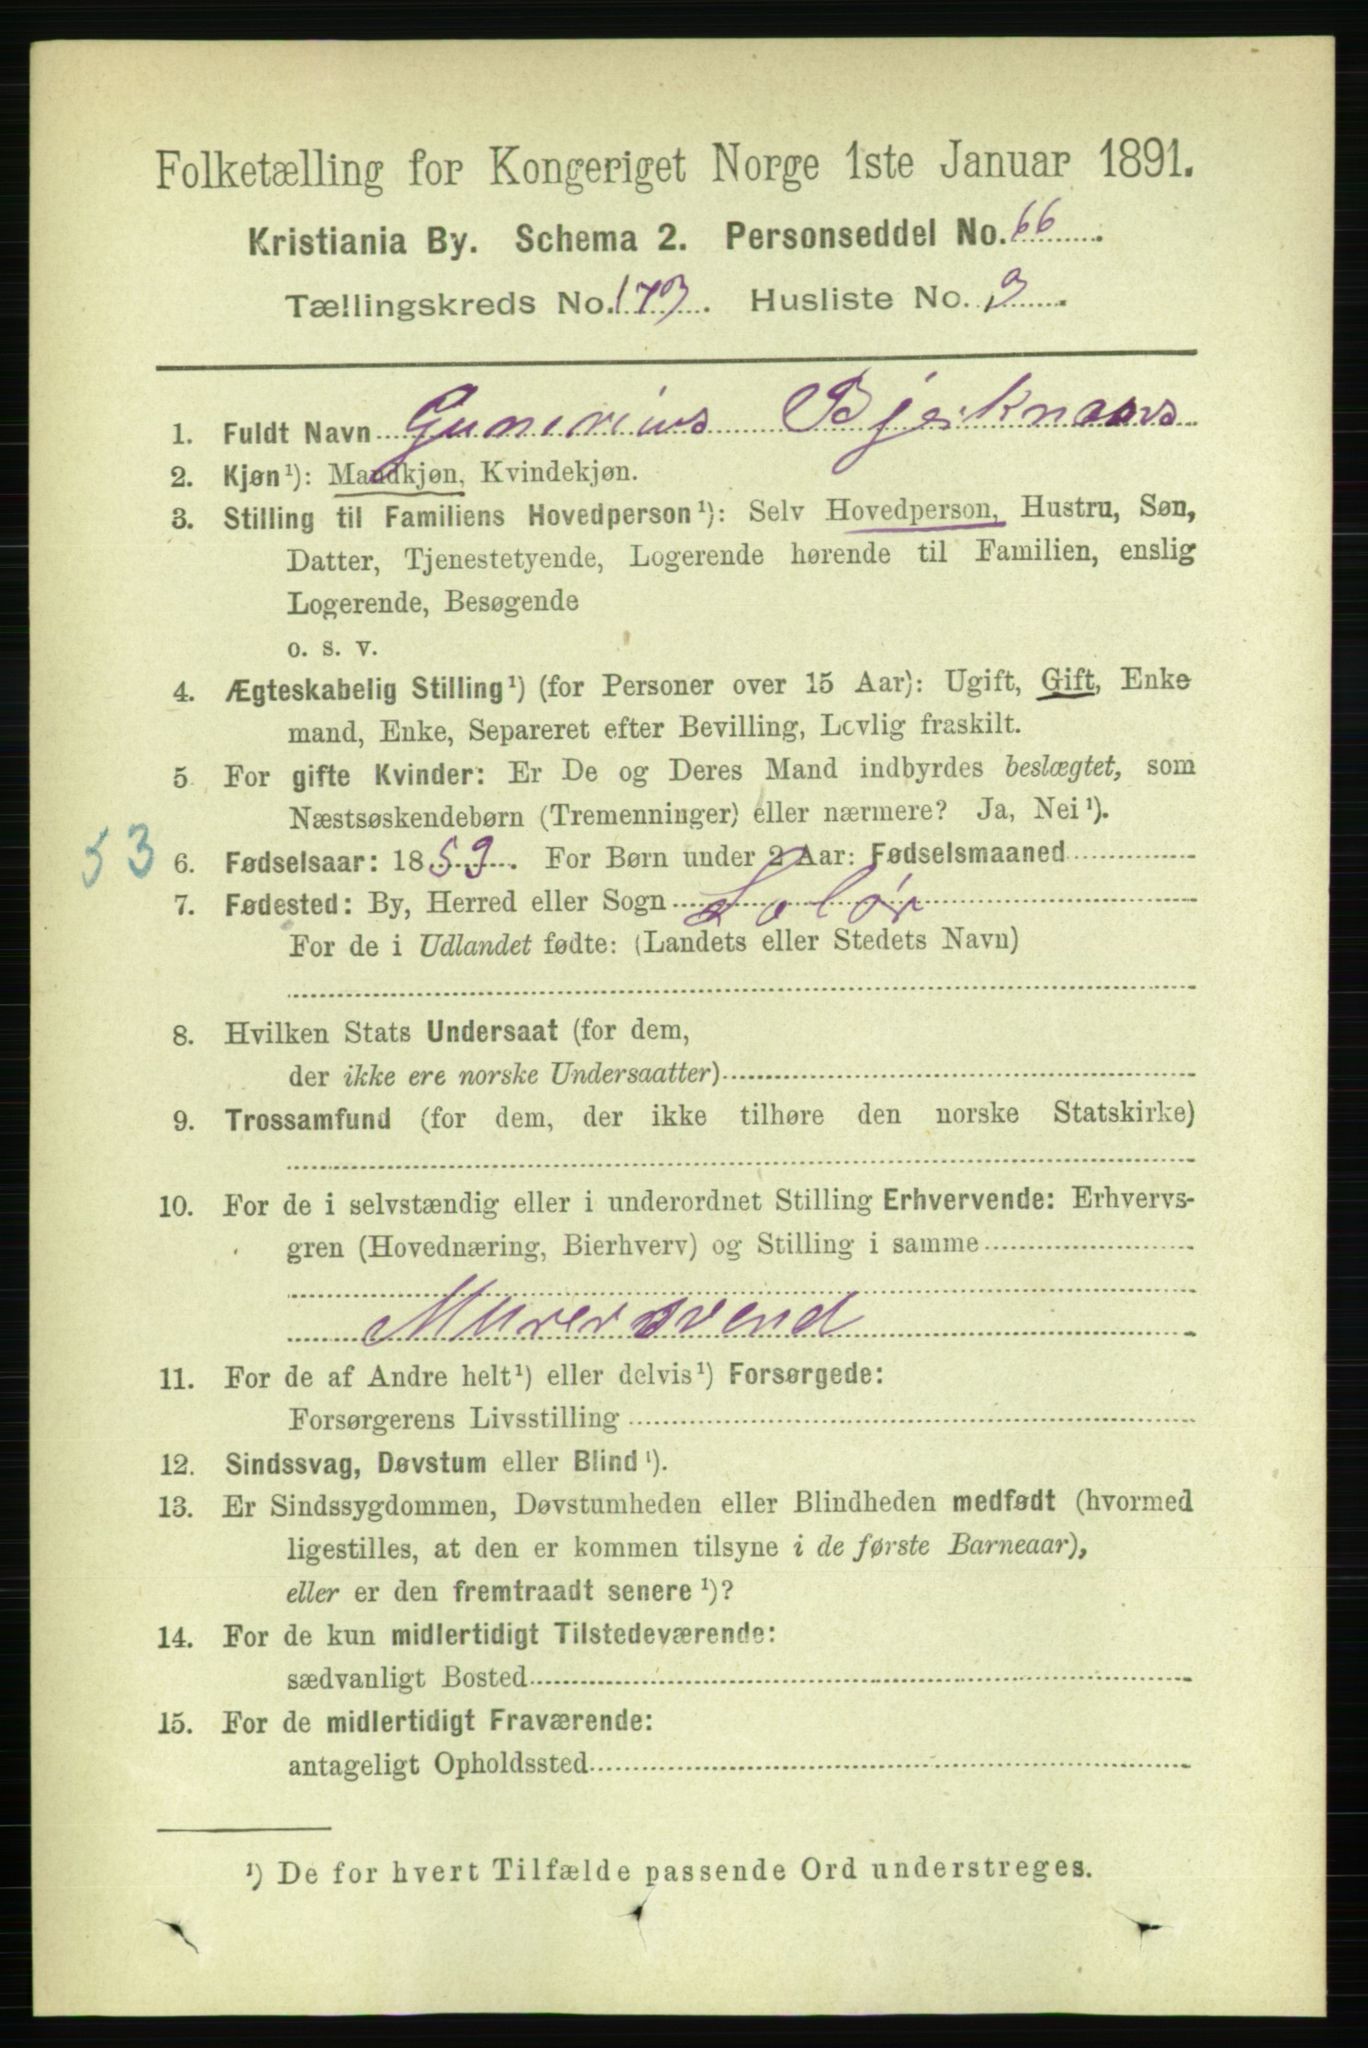 Folketælling for Kongeriget Norge 1ste Januar 1891.
Kristiania By. Schema 2. Personseddel No. 66
Tællingskreds No. 173. Husliste No. 9.
1. Fuldt Navn Gunerius Bjerknæs
2. Kjøn¹): Mandkjøn, Kvindekjøn.
3. Stilling til Familiens Hovedperson¹): Selv Hovedperson, Hustru, Søn,
Datter, Tjenestetyende, Logerende hørende til Familien, enslig
Logerende, Besøgende
o. s. v.
4. Ægteskabelig Stilling¹) (for Personer over 15 Aar): Ugift, Gift, Enke
mand, Enke, Separeret efter Bevilling, Lovlig fraskilt.
5 For gifte Kvinder: Er De og Deres Mand indbyrdes beslægtet, som
Næstsøskendebørn (Tremenninger) eller nærmere? Ja, Nei¹).
53
6. Fødselsaar: 1859. For Børn under 2 Aar: Fødselsmaaned
7. Fødested: By, Herred eller Sogn Solør
For de i Udlandet fødte: (Landets eller Stedets Navn)
8. Hvilken Stats Undersaat (for dem,
der ikke ere norske Undersaatter)
9. Trossamfund (for dem, der ikke tilhøre den norske Statskirke)
10. For de i selvstændig eller i underordnet Stilling Erhvervende: Erhvervs-
gren (Hovednæring, Bierhverv) og Stilling i samme
Murersvend
11. For de af Andre helt¹) eller delvis¹) Forsørgede:
Forsørgerens Livsstilling
12. Sindssvag, Døvstum eller Blind¹).
13. Er Sindssygdommen, Døvstumheden eller Blindheden medfødt (hvormed
ligestilles, at den er kommen tilsyne i de første Barneaar),
eller er den fremtraadt senere¹)?
14. For de kun midlertidigt Tilstedeværende:
sædvanligt Bosted
15. For de midlertidigt Fraværende:
antageligt Opholdssted
¹) De for hvert Tilfælde passende Ord understreges.